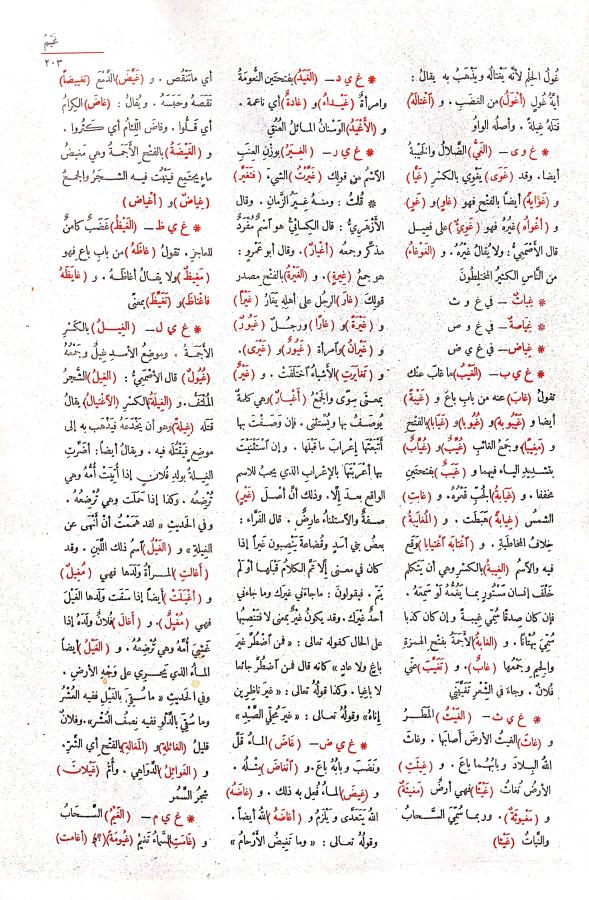 غَيْمٌ
٢٠٣
غُولُ الحِلْم لأنَّه يَغْتَالُه ويَذْهَبُ به يقالُ :
أيَّةُ غُولٍ (أَغْوَلُ) من الغَضَبِ . و (اغْتَالَهُ)
قَتَلَهُ غِيلةً . وأصلُه الواوُ
* غ و ى — (الغَيُّ) الضَّلالُ والخَيْبةُ
أيضا . وقد (غَوَى) يَغْوِي بالكسْرِ (غَيًّا)
و (غَوَايَةً) أيضاً بالفتْحِ فهو (غَاوٍ) و (غَوٍ)
و (أَغْوَاهُ) غَيْرُهُ فهو (غَوِيٌّ) على فَعِيل
قال الأَصْمَعِيُّ : ولا يقالُ غَيْرُهُ . و (الغَوْغَاءُ)
من النَّاسِ الكثيرُ المختلِطُون
* غِياثٌ — في غ و ث
* غِيَاصَةٌ — في غ و ص
* غِياض — في غ ي ض
* غ ي ب — (الغَيْبُ) ما غابَ عنك
تقولُ (غابَ) عنه من باب باعَ و (غَيْبةً)
أيضا و (غَيْبُوبةً) و (غُيُوبا) و (غَيَابا) بالفتح
و (مَغِيبًا) وجَمْعُ الغائبِ (غُيَّبٌ) و (غُيَّابٌ)
بتشديدِ الياء فيهما و (غَيَبٌ) بفتحتينِ
مخففا . و (غَيَابةُ) الجُبِّ قَعْرُهُ . و (غابتِ)
الشمسُ (غِيابةً) هَبَطَت . و (المُغَايبَةُ)
خِلافُ المُخاطَبةِ . و (اغْتابَه اغتيابا) وَقَع
فيه والآسْمُ (الغِيبةُ) بالكسْرِ وهي أن يَتَكلَّم
خَلْفَ إنسان مَسْتُورٍ بما يَغُمُّهُ لَوْ سَمِعَهُ .
فإن كان صِدقًا سُمِّيَ غِيبةً وإن كان كذبا
سُمِّيَ بُهْتانًا . و (الغابةُ) الأَجَمةُ بفتح الهمزة
والجيم وجَمْعُها (غابٌ) . و (تَغَيَّبَ) عَنِّي
فُلانٌ . وجاءَ في الشِّعرِ تَغَيَّبَنِي
* غ ي ث — (الغَيْثُ) المَطَرُ
و (غاثَ) الغيثُ الأرضَ أصابَها . وغاثَ
اللهُ البِلادَ وبابُهما باعَ . و (غِيثَتِ)
الأرضُ تُغاثُ (غَيْثًا) فهي أرضٌ (مَغِيثةٌ)
و (مَغْيُوثةٌ) . وربما سُمِّيَ السَّحابُ
والنباتُ (غَيْثا)
* غ ي د — (الغَيَدُ) بفتحتين النُّعومةُ
وامرأةٌ (غَيْداءُ) و (غادةٌ) أي ناعِمة .
و (الأَغْيَدُ) الوَسْنانُ المائلُ العُنُقِ
* غ ي ر — (الغِيَرُ) بوزْنِ العِنَبِ
الآسْمُ من قولِك (غَيَّرْتُ) الشيءَ (فَتَغَيَّرَ)
* قُلْتُ : ومنهُ غِيَرُ الزَّمانِ . وقال
الأَزْهَرِيُّ : قال الكِسائيُّ هو آسْمٌ مُفْرَدٌ
مذكَّر وجمعُه (أَغْيَارٌ) . وقال أبو عَمْرٍو :
هو جمعُ (غِيرةٍ) . و (الغَيْرةُ) بالفتح مصدر
قولِكَ (غارَ) الرجُلُ على أهلِه يَغارُ (غَيْرا)
و (غَيْرةً) و (غارًا) ورجُلٌ (غَيُورٌ)
و (غَيْرانُ) وآمرأةٌ (غَيُورٌ) و (غَيْرَى) .
و (تغايَرَتِ) الأشياءُ اختَلفَتْ . و (غَيْرٌ)
بمعنى سِوًى والجَمْعُ (أَغْيارٌ) وهي كلمةٌ
يُوصَفُ بها ويُسْتثنى . فإن وَصَفْتَ بها
أَتْبَعْتَها إعْرابَ ما قبلَها . وإن آستَثْنَيْتَ
بها أَعْرَبْتَها بالإعراب الذي يجبُ للاسم
الواقع بعدَ إلَّا . وذلك أنَّ أصلَ (غَيْرٍ)
صفةٌ والآستثناءُ عارِضٌ . قال الفَرَّاء :
بعضُ بني أسدٍ وقُضاعةَ يَنْصِبون غيراً إذا
كان في معنى إلَّا تمَّ الكلامُ قبلَها أو لم
يَتِمَّ . فيقولون : ما جاءَني غيرَك وما جاءني
أحدٌ غيرَك . وقد يكونُ غيرٌ بمعنى لا فتَنْصِبُها
على الحالِ كقوله تعالى : « فَمنِ آضْطُرَّ غيرَ
باغٍ ولا عادٍ » كأنه قال فمن آضْطُرَّ جائعا
لا باغِيا . وكذا قولُهُ تعالى : « غيرَ ناظِرين
إناهُ » وقولُهُ تعالى : « غيرَ مُحِلِّي الصَّيْدِ »
* غ ي ض — (غَاضَ) الماءُ قَلَّ
ونَضَبَ وبابُهُ باعَ . و (آنْغاضَ) مِثْلُه .
و (غِيضَ) الماءُ فُعِل به ذلك . و (غاضَهُ)
اللهُ يتعدَّى ويَلْزَمُ و (أَغاضَهُ) اللهُ أيضاً .
وقولُه تعالى : « وما تَغِيضُ الأَرْحامُ »
أي ما تَنْقُص . و (غَيَّضَ) الدَّمْعَ (تغييضاً)
نَقَصَهُ وحَبَسَهُ . ويُقالُ : (غاضَ) الكِرامُ
أي قَلُّوا . وفاضَ اللِّئامُ أي كَثُروا .
و (الغَيْضَةُ) بالفتْحِ الأَجَمَةُ وهي مَغِيضُ
ماءٍ يجتمع فيَنْبُتُ فيه الشَّجَرُ والجمعُ
(غِياضٌ) و (أَغْياضٌ)
* غ ي ظ — (الغَيْظُ) غَضَبٌ كامنٌ
للعاجزِ . تقولُ (غاظَهُ) من باب باع فهو
(مَغِيظٌ) ولا يقالُ أغاظَهُ . و (غايَظَهُ
فاغتاظَ) و (تَغَيَّظَ) بمعنًى
* غ ي ل — (الغِيلُ) بالكَسْرِ
الأَجَمةُ . وموضِعُ الأسدِ غِيلٌ وجَمْعُهُ
(غُيُولٌ) قال الأَصْمَعِيُّ : (الغِيلُ) الشَّجَرُ
المُلْتَفُّ . و (الغِيلةُ) بالكسْرِ (الآغْتيالُ) يقالُ
قَتَلَه (غِيلةً) وهو أن يَخْدَعَهُ فيَذْهَب به إلى
موضِعٍ فيقْتُله فيه . ويقالُ أيضاً : أضَرَّت
الغِيلةُ بولَدِ فُلانٍ إذا أُتِيَت أُمُّهُ وهي
تُرْضِعُه . وكذا إذا حَمَلَت وهي تُرْضِعُهُ .
وفي الحَديثِ « لقد هَمَمْتُ أنْ أَنْهَى عن
الغِيلةِ » و (الغَيْلُ) آسمُ ذلك اللَّبَنِ . وقد
(أغالَتِ) المرأةُ ولَدَها فهي (مُغِيلٌ)
و (أغْيَلَتْ) أيضاً إذا سَقَت ولَدَها الغَيْلَ
فهي (مُغْيِلٌ) . و (أغالَ) فُلانٌ ولَدَهُ إذا
غَشِيَ أُمَّهُ وهي تُرْضِعُهُ . و (الغَيْلُ) أيضاً
الماءُ الذي يَجري على وَجْهِ الأرضِ .
وفي الحَديثِ « ما سُقِيَ بالغَيْلِ ففيه العُشْرُ
وما سُقِيَ بالدَّلْوِ ففيه نِصفُ العُشْرِ » . وفلانٌ
قليلُ (الغائلةِ) و (المَغالةِ) بالفتْحِ أي الشَّرِّ .
و (الغَوائلُ) الدَّواهي . وأُمُّ (غَيْلانَ)
شجرُ السَّمُرِ
* غ ي م — (الغَيْمُ) السَّحابُ
و (غامَتِ) السَّماءُ تَغِيمُ (غُيُومةً) (؟) و (أغامت)